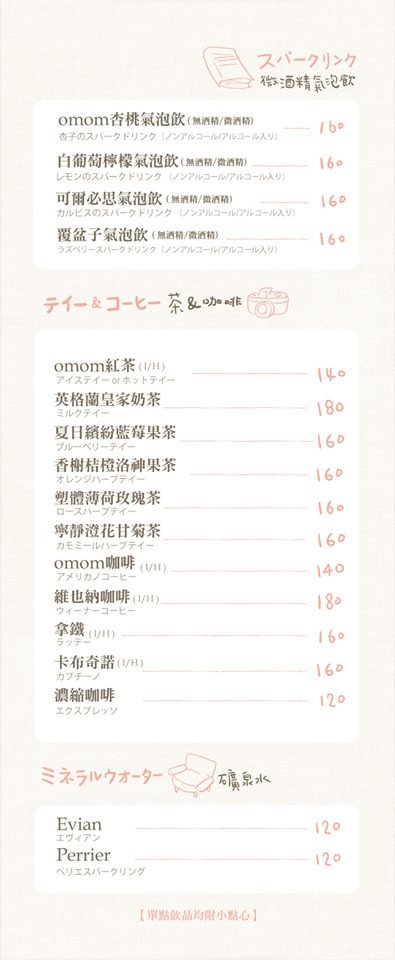 スパークリンク
微酒精氣泡飲
omom杏桃氣泡飲(無酒精/微酒精) 160
杏子のスパークドリンク（ノンアルコール/アルコール入り）
白葡萄檸檬氣泡飲(無酒精/微酒精) 160
レモンのスパークドリンク（ノンアルコール/アルコール入り）
可爾必思氣泡飲(無酒精/微酒精) 160
カルピスのスパークドリンク（ノンアルコール/アルコール入り）
覆盆子氣泡飲(無酒精/微酒精) 160
ラズベリースパークドリンク（ノンアルコール/アルコール入り）
テイー＆コーヒー 茶&咖啡
omom紅茶(I/H) 140
アイステイー orホットテイー
英格蘭皇家奶茶 180
ミルクテイー
夏日繽紛藍莓果茶 160
ブルーベリーテイー
香榭桔橙洛神果茶 160
オレンジハーブテイー
塑體薄荷玫瑰茶 160
ロースハーブテイー
寧靜澄花甘菊茶 160
カモミールハーブテイー
omom咖啡(I/H) 140
アメリカノコーヒー
維也納咖啡(I/H) 180
ウィーナーコーヒー
拿鐵(I/H) 160
ラッテー
卡布奇諾(I/H) 160
カプチーノ
濃縮咖啡 120
エクスプレッソ
ミネラルウオーター 礦泉水
Evian 120
エヴィアン
Perrier 120
ペリエスパークリング
【單點飲品均附小點心】